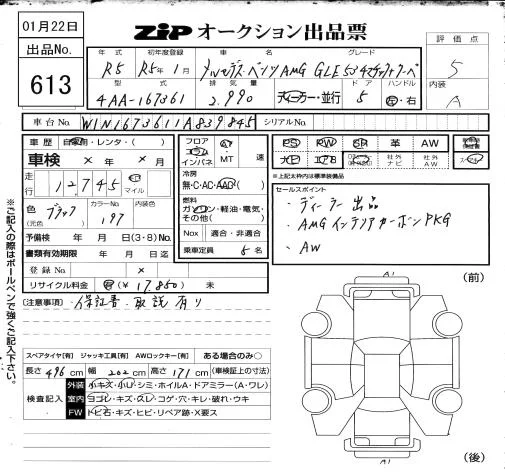 01月22日
ZIP オークション出品票
出品No.
613
評価点
5
内装
A
年式 初年度登録 車名 グレード
R5 R5年1月 メルセデス・ベンツ AMG GLE53 4マチッククーペ
型式 排気量 ドア ハンドル
4AA-167361 2.990 ディーラー・並行 5 左・右
車台No. W1N1673611A839845 シリアルNo.
車歴 自家用・レンタ・( )
車検 × 年 × 月
走行 12,745 km マイル
色(元色) ブラック カラーNo. 197 内装色
予備検 年 月 日(3・8)交付
書類有効期限 年 月 日迄
登録No. ×
リサイクル料金 (¥ 17.850) 未
フロア コラム インパネ AT MT 速
冷房 無・C・AC・AAC
燃料 ガソリン・軽油・電気・その他( )
Nox 適合・非適合
乗車定員 5名
PS PW SR 革 AW
ナビ エアB 社外ナビ 社外AW
※上記太枠内は標準装備品
セールスポイント
・ディーラー出品
・AMGインテリアカーボンPKG
・AW
[注意事項] 保証書 取説 有り
※ご記入の際はボールペンで強くご記入下さい。
スペアタイヤ[有] ジャッキ工具[有] AWロックキー[有] ある場合のみ○
長さ 496 cm 幅 202 cm 高さ 171 cm (車検証上の寸法)
検査記入
外装 小キズ・小U・シミ・ホイルA・ドアミラー(A・ワレ)
室内 ヨゴレ・キズ・スレ・コゲ・穴・キレ・破れ・ウキ
FW トビ石・キズ・ヒビ・リペア跡・X要ス
A1
(前)
A1
(後)